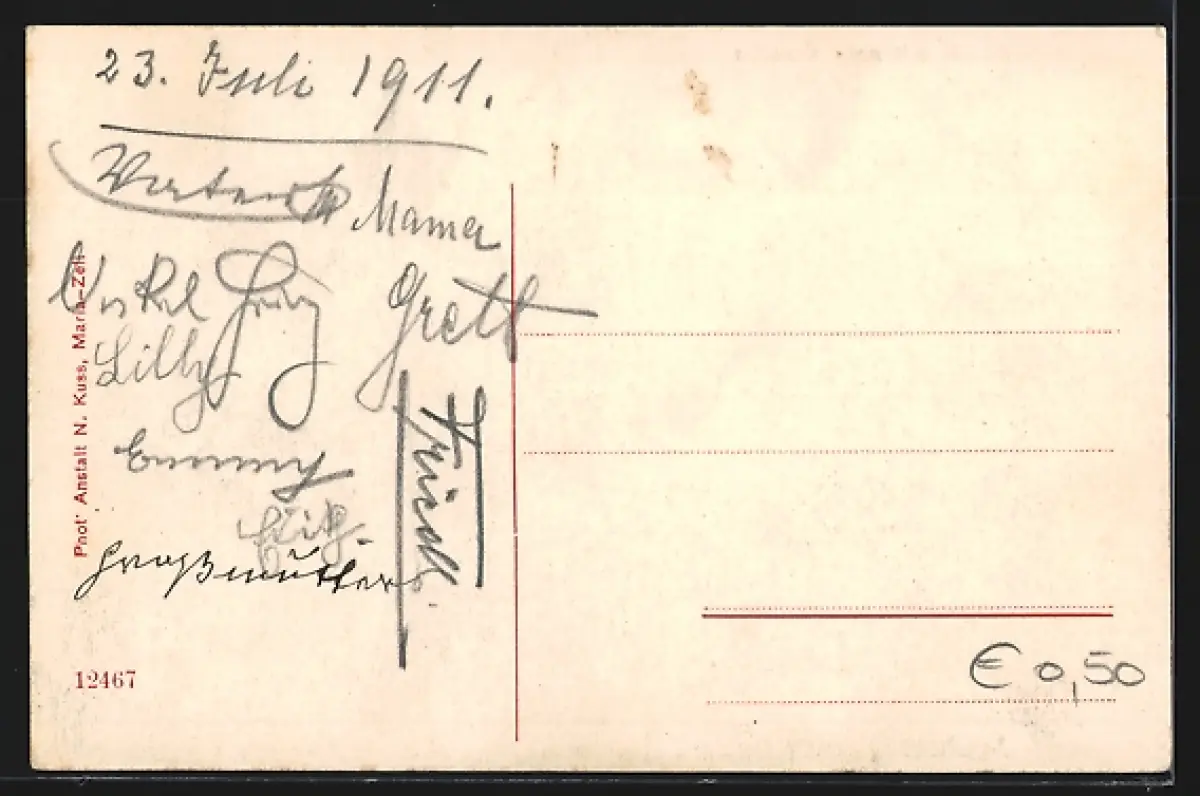 23. Juli 1911.
Mama
Onkel
Grett
Lilly
Emmy
Friedl.
Großmutter
Phot. Anstalt N. Kuss, Maria-Zell
12467
€ 0,50